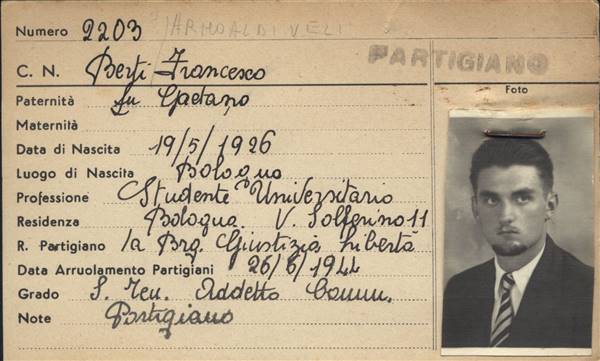 Numero 2203 ARMOALDI VELI
PARTIGIANO
C. N. Berti Francesco
Foto
Paternità fu Gaetano
Maternità
Data di Nascita 19/5/1926
Luogo di Nascita Bologna
Professione Studente Universitario
Residenza Bologna. V. Solferino 11
R. Partigiano 1a Brg. Giustizia Libertà
Data Arruolamento Partigiani 26/6/1944
Grado S. Ten. Addetto Comm.
Note Partigiano